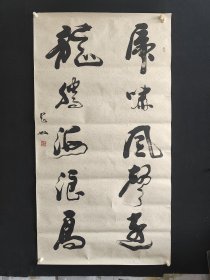 虎啸风声远
龙腾海浪高